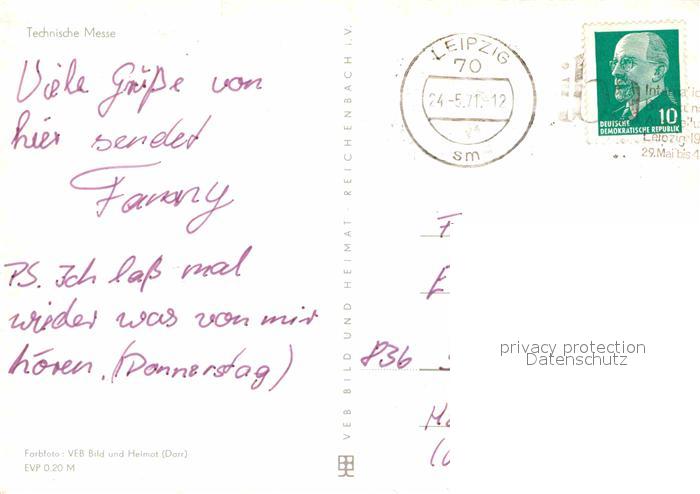 Technische Messe
Viele Grüße von
hier sendet
Fanny
PS. Ich laß mal
wieder was von mir
hören. (Donnerstag)
Farbfoto: VEB Bild und Heimat (Darr)
EVP 0.20 M
VEB BILD UND HEIMAT · REICHENBACH i.V.
LEIPZIG
70
24.-5.71.-12
sm
DEUTSCHE
DEMOKRATISCHE REPUBLIK
10
Leipzig 19
29. Mai bis 4
F
836
privacy protection
Datenschutz